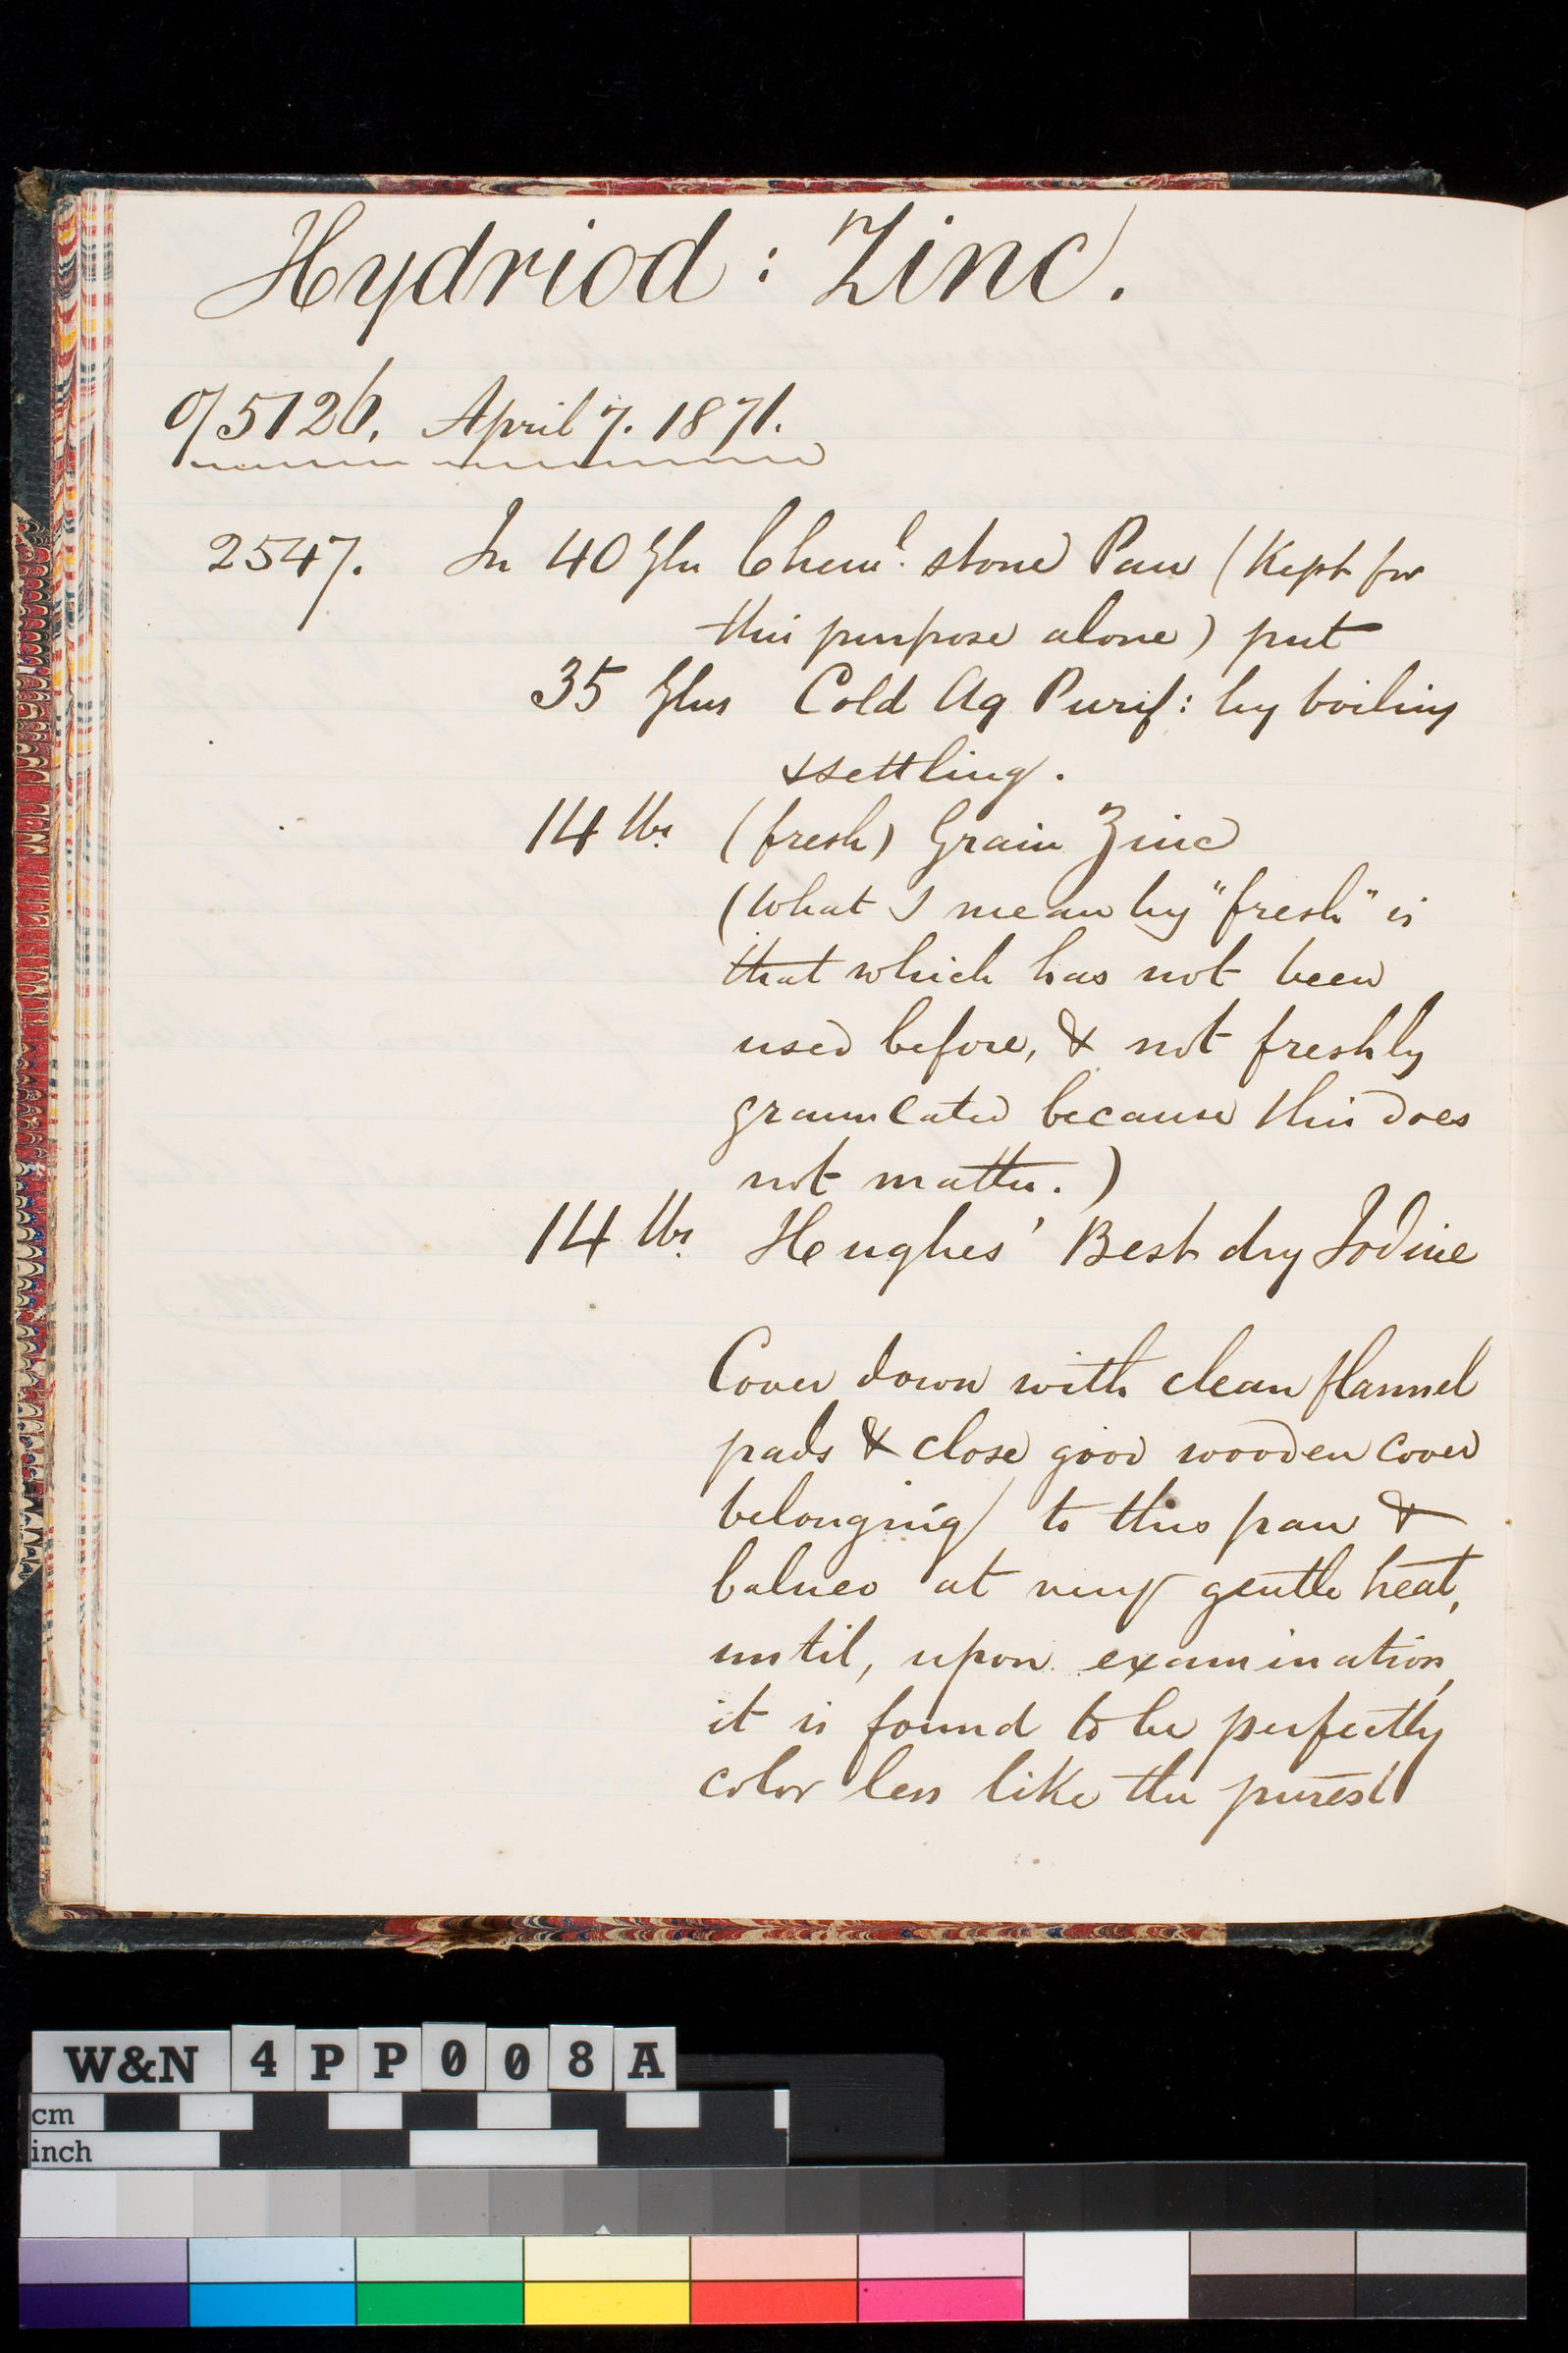 Hydriod : Zinc.
o/5126. April 7. 1871.
2547. In 40 Gln Cheml. stone Pan (Kept for
this purpose alone) put
35 Glns Cold Aq Purif: by boiling
& settling.
14 lbs. (fresh) Grain Zinc
(What I mean by "fresh" is
that which has not been
used before, & not freshly
granulated because this does
not matter.)
14 lbs. Hughes' Best dry Iodine
Cover down with clean flannel
pads & close good wooden cover
belonging to this pan &
balneo at very gentle heat,
until, upon examination,
it is found to be perfectly
color less like the purest
W&N 4PP008A
cm
inch